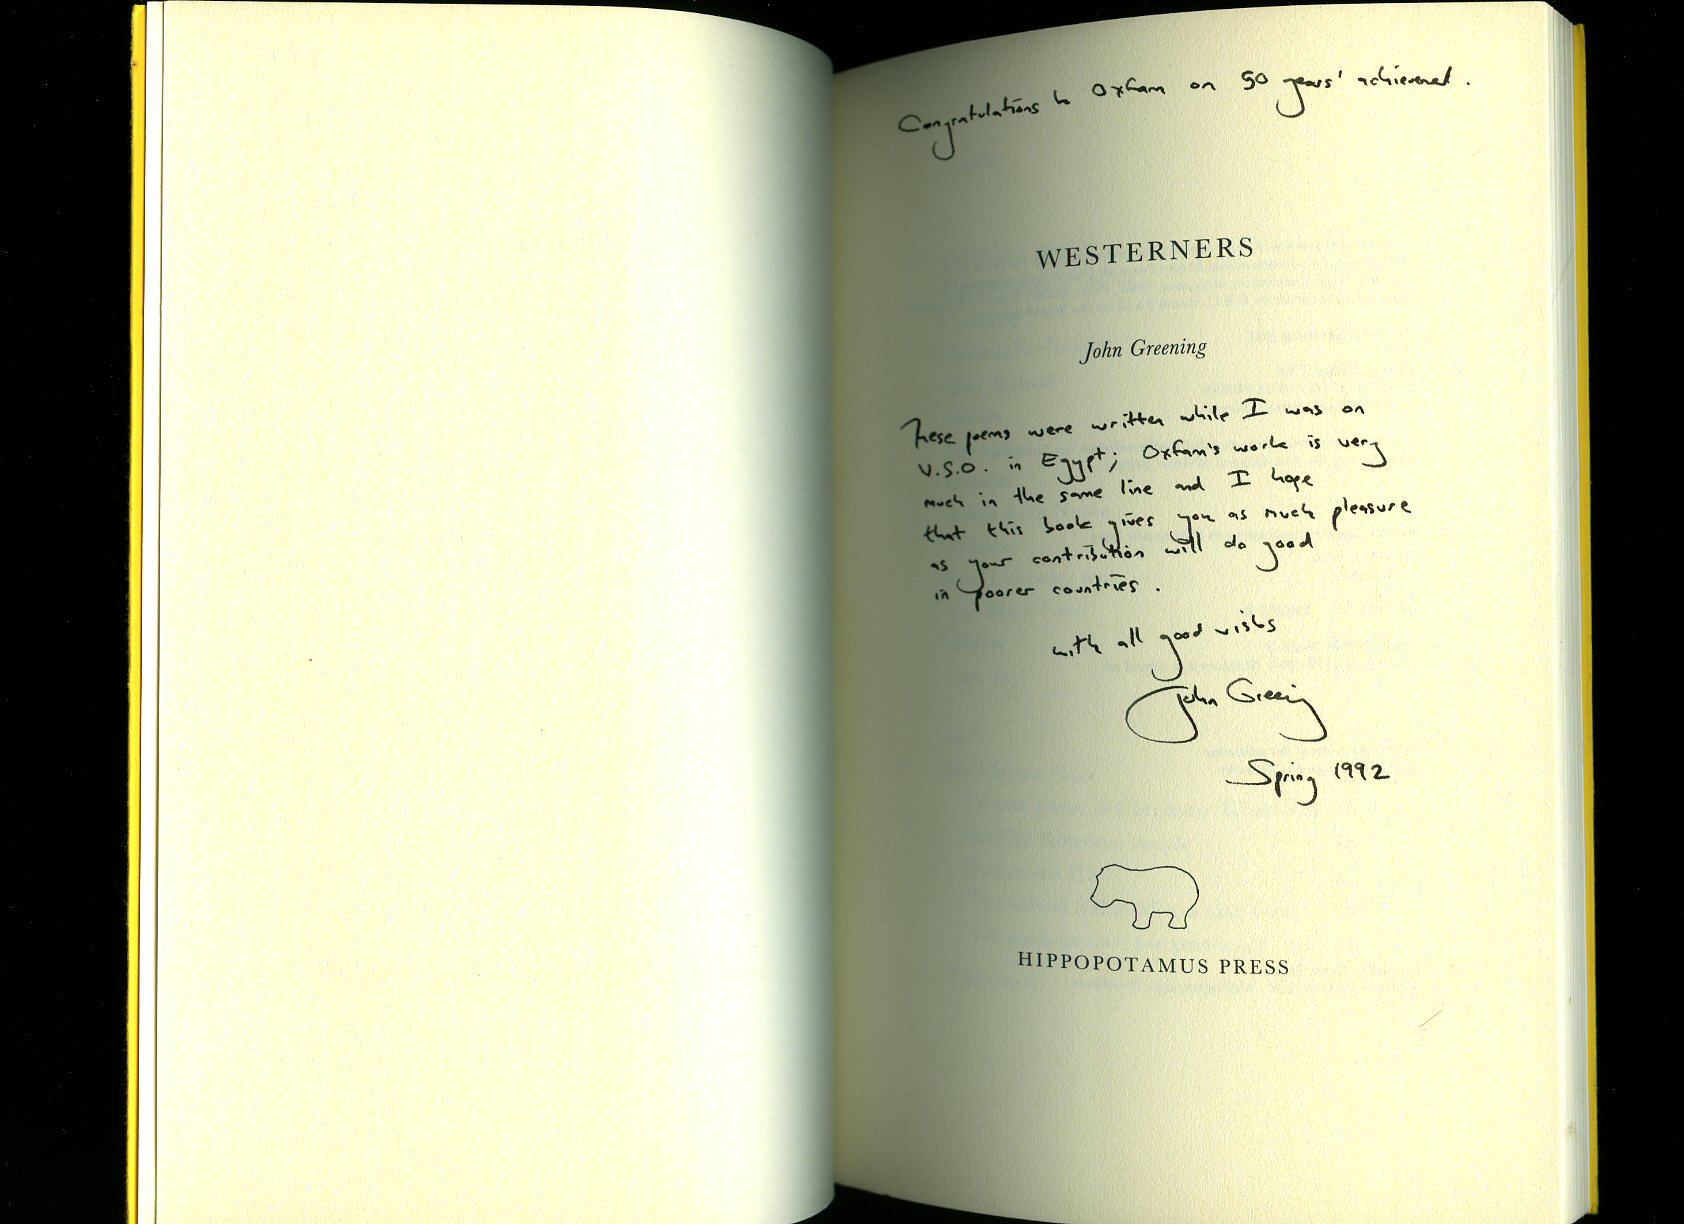 Congratulations to Oxfam on 50 years' achievement.
WESTERNERS
John Greening
These poems were written while I was on
V.S.O. in Egypt; Oxfam's work is very
much in the same line and I hope
that this book gives you as much pleasure
as your contribution will do good
in poorer countries.
with all good wishes
John Greening
Spring 1992
HIPPOPOTAMUS PRESS